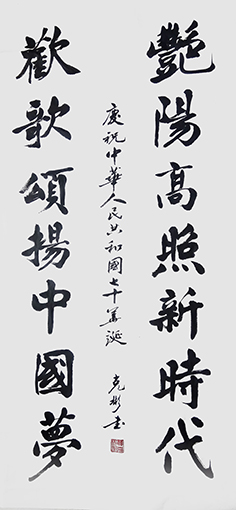 艷陽高照新時代
歡歌頌揚中國夢
慶祝中華人民共和國七十華誕
克彬書